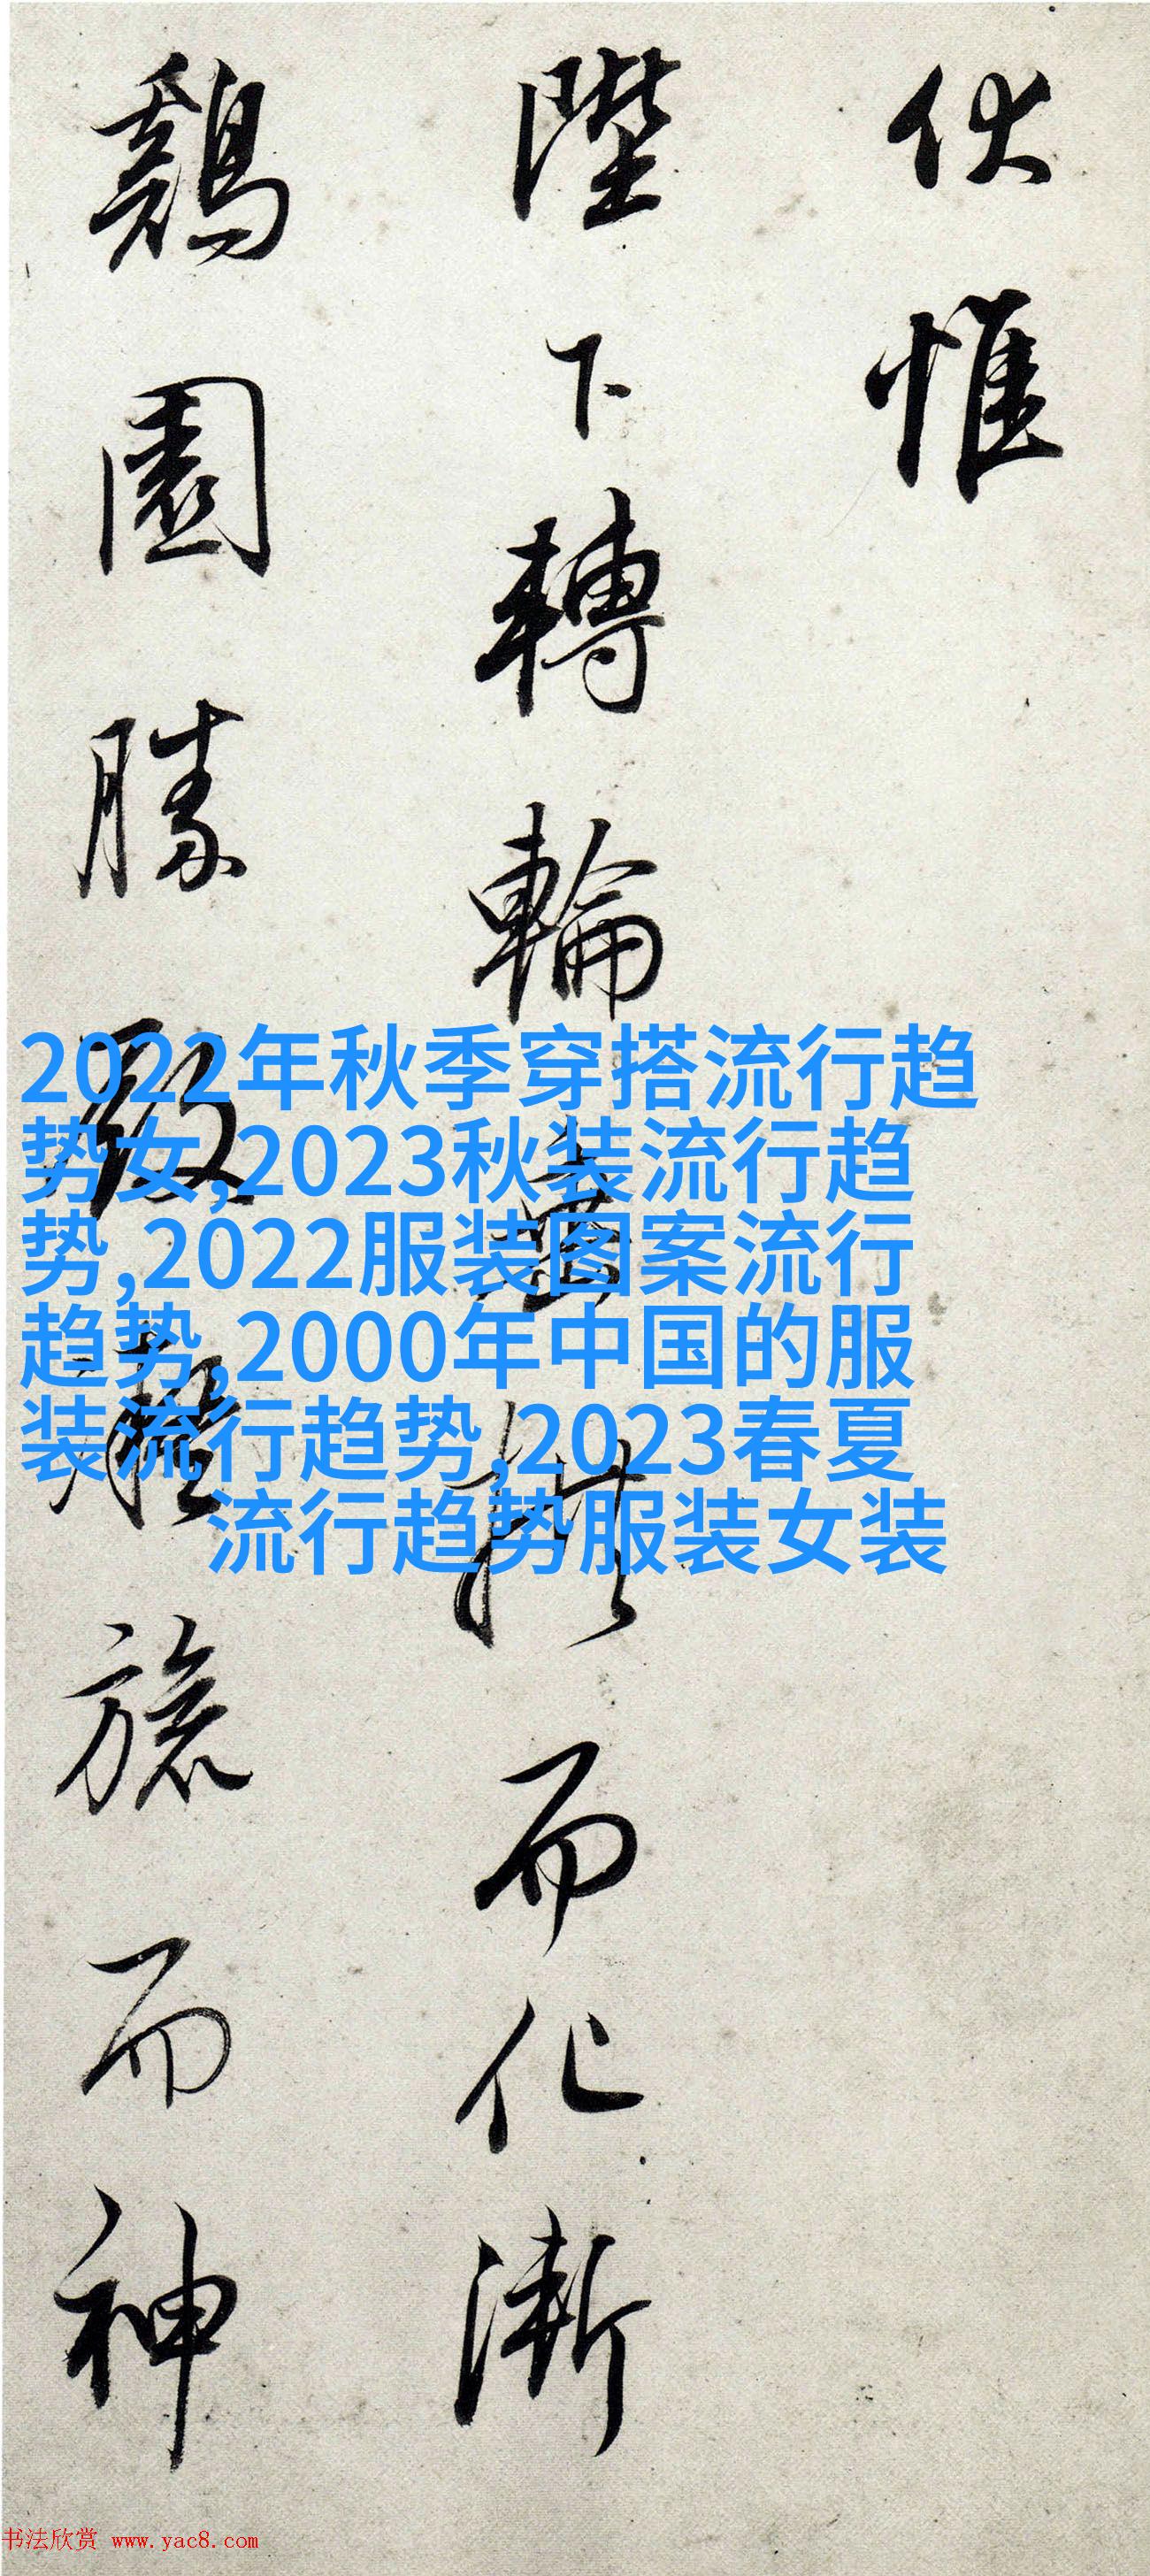 伏惟
陛下轉輪垂拱而化漸
鷄園勝殿凝旒而神
2022年秋季穿搭流行趋
势女,2023秋装流行趋
势,2022服装图案流行
趋势,2000年中国的服
装流行趋势,2023春夏
流行趋势服装女装
书法欣赏 www.yac8.com